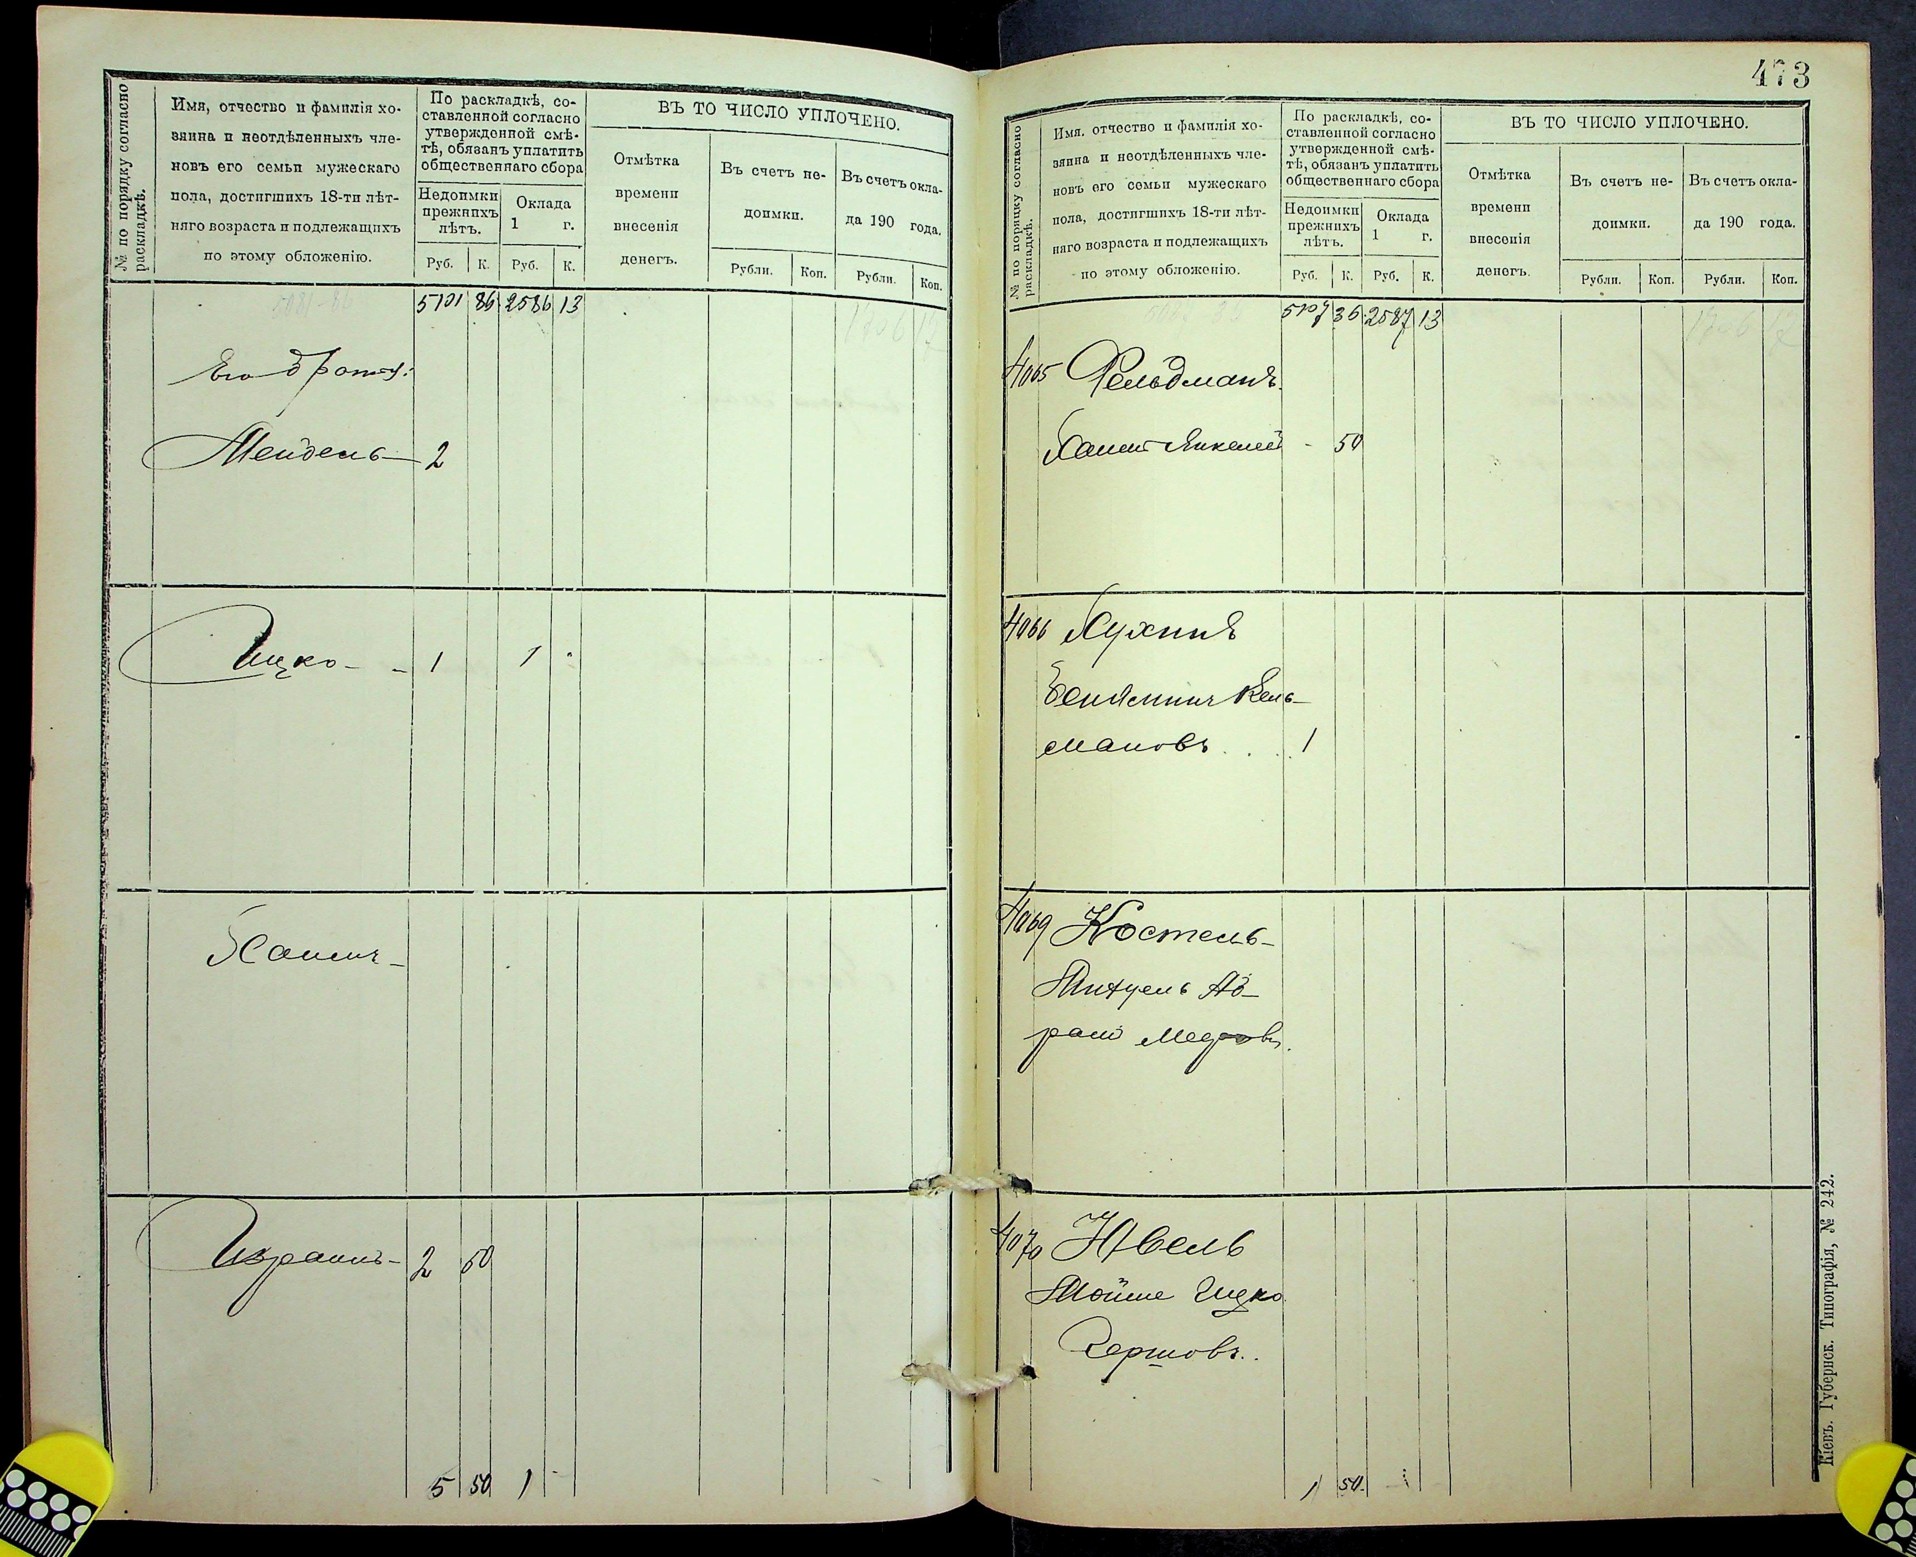 № по порядку согласно
раскладкѣ.
Имя, отчество и фамилія хо-
зяина и неотдѣленныхъ чле-
новъ его семьи мужескаго
пола, достигшихъ 18-ти лѣт-
няго возраста и подлежащихъ
по этому обложенію.
По раскладкѣ, со-
ставленной согласно
утвержденной смѣ-
тѣ, обязанъ уплатить
общественнаго сбора
Недоимки
прежнихъ
лѣтъ.
Оклада
1 г.
Руб. К. Руб. К.
ВЪ ТО ЧИСЛО УПЛОЧЕНО.
Отмѣтка
времени
внесенія
денегъ.
Въ счетъ не-
доимки.
Рубли. Коп.
Въ счетъ окла-
да 190 года.
Рубли. Коп.
5101 86 2586 13
Его
Мендель 2
Ицко - - 1 1 -
Хаим -
Израиль - 2 50
5 50 1 -
473
№ по порядку согласно
раскладкѣ.
Имя, отчество и фамилія хо-
зяина и неотдѣленныхъ чле-
новъ его семьи мужескаго
пола, достигшихъ 18-ти лѣт-
няго возраста и подлежащихъ
по этому обложенію.
По раскладкѣ, со-
ставленной согласно
утвержденной смѣ-
тѣ, обязанъ уплатить
общественнаго сбора
Недоимки
прежнихъ
лѣтъ.
Оклада
1 г.
Руб. К. Руб. К.
ВЪ ТО ЧИСЛО УПЛОЧЕНО.
Отмѣтка
времени
внесенія
денегъ.
Въ счетъ не-
доимки.
Рубли. Коп.
Въ счетъ окла-
да 190 года.
Рубли. Коп.
5107 36 2587 13
4065 Фельдманъ.
Хаим Янкелев - 50
4066 Хухкинъ
Бениямин Кель-
мановъ . . . 1
4069 Костель-
Аб-
рам
4070 Ювель
Мойше Ицко
Гершовъ..
1 50
Кіевъ. Губернск. Типографія, № 242.